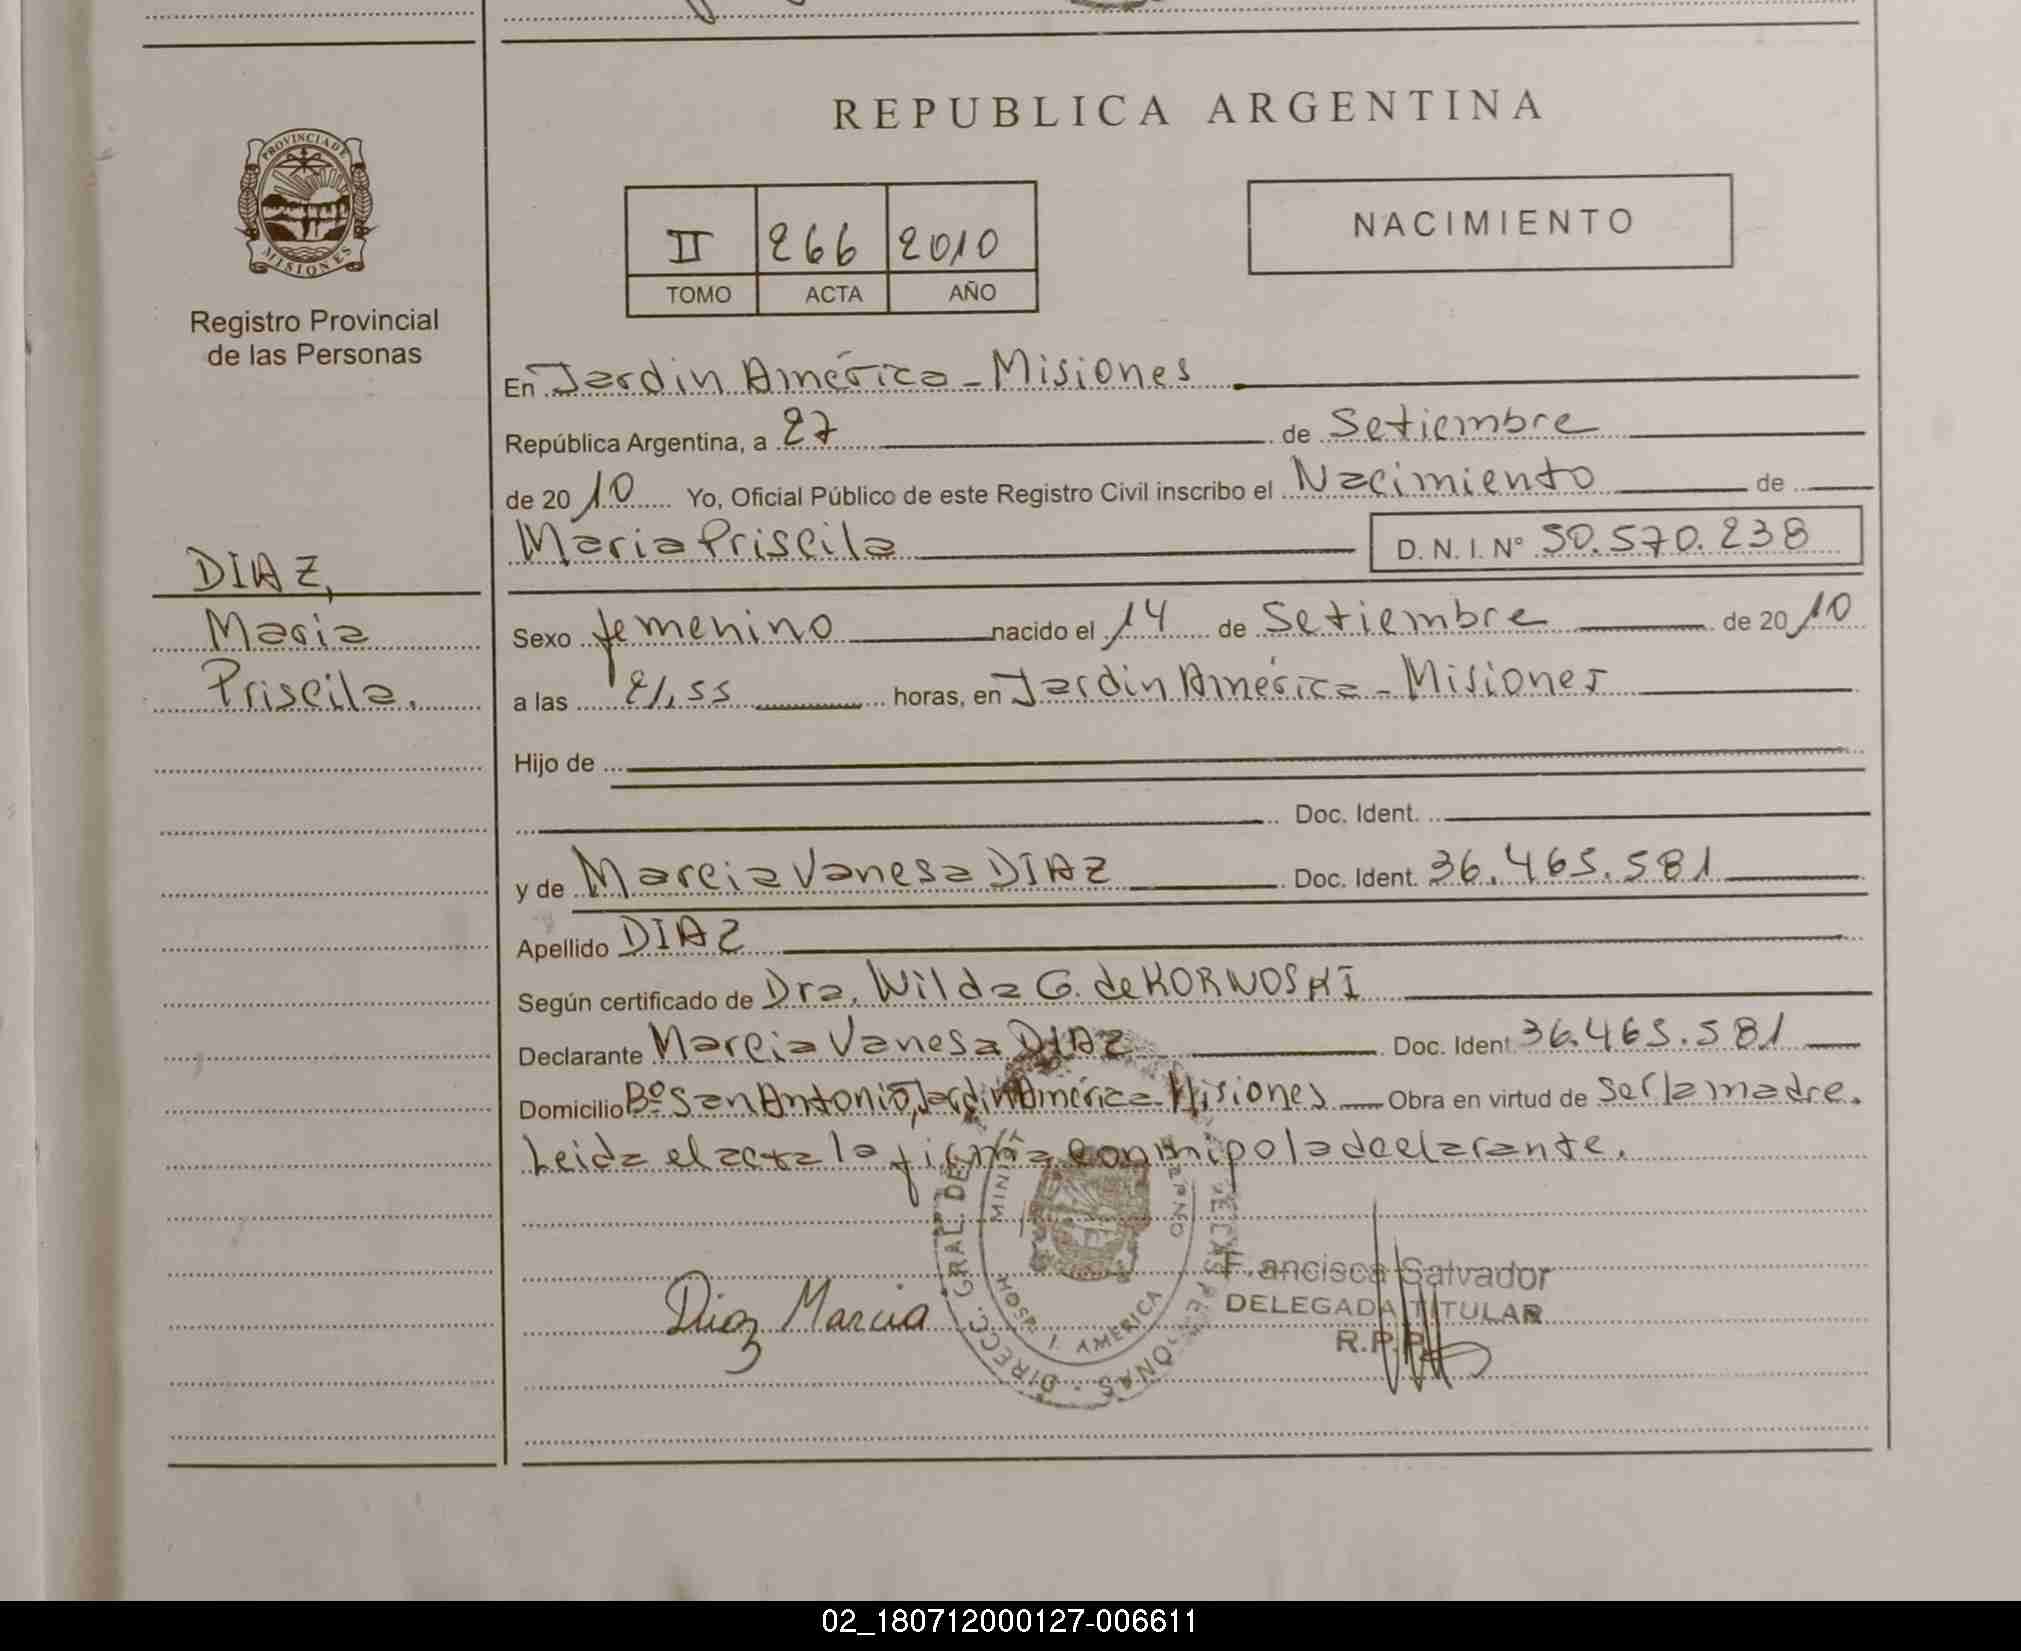 REPUBLICA ARGENTINA
PROVINCIA DE
MISIONES
Registro Provincial
de las Personas
II 266 2010
TOMO ACTA AÑO
NACIMIENTO
En Jardin América - Misiones
República Argentina, a 27 de Setiembre
de 20 10 Yo, Oficial Público de este Registro Civil inscribo el Nacimiento de
Maria Priscila D.N.I. Nº 50.570.238
DIAZ,
Maria
Priscila.
Sexo femenino nacido el 14 de Setiembre de 20 10
a las 21,55 horas, en Jardin América - Misiones
Hijo de
Doc. Ident.
y de Marcia Vanesa DIAZ Doc. Ident. 36.465.581
Apellido DIAZ
Según certificado de Dra. Wilda G. de KORNOSKI
Declarante Marcia Vanesa DIAZ Doc. Ident. 36.465.581
Domicilio Bº San Antonio, Jardin América - Misiones Obra en virtud de ser la madre.
Leida el acta la firma conmipo la declarante.
DIRECC. GRAL. DE
AMERICA
Diaz Marcia
Francisca Salvador
DELEGADA TITULAR
R.P.P.
02_180712000127-006611